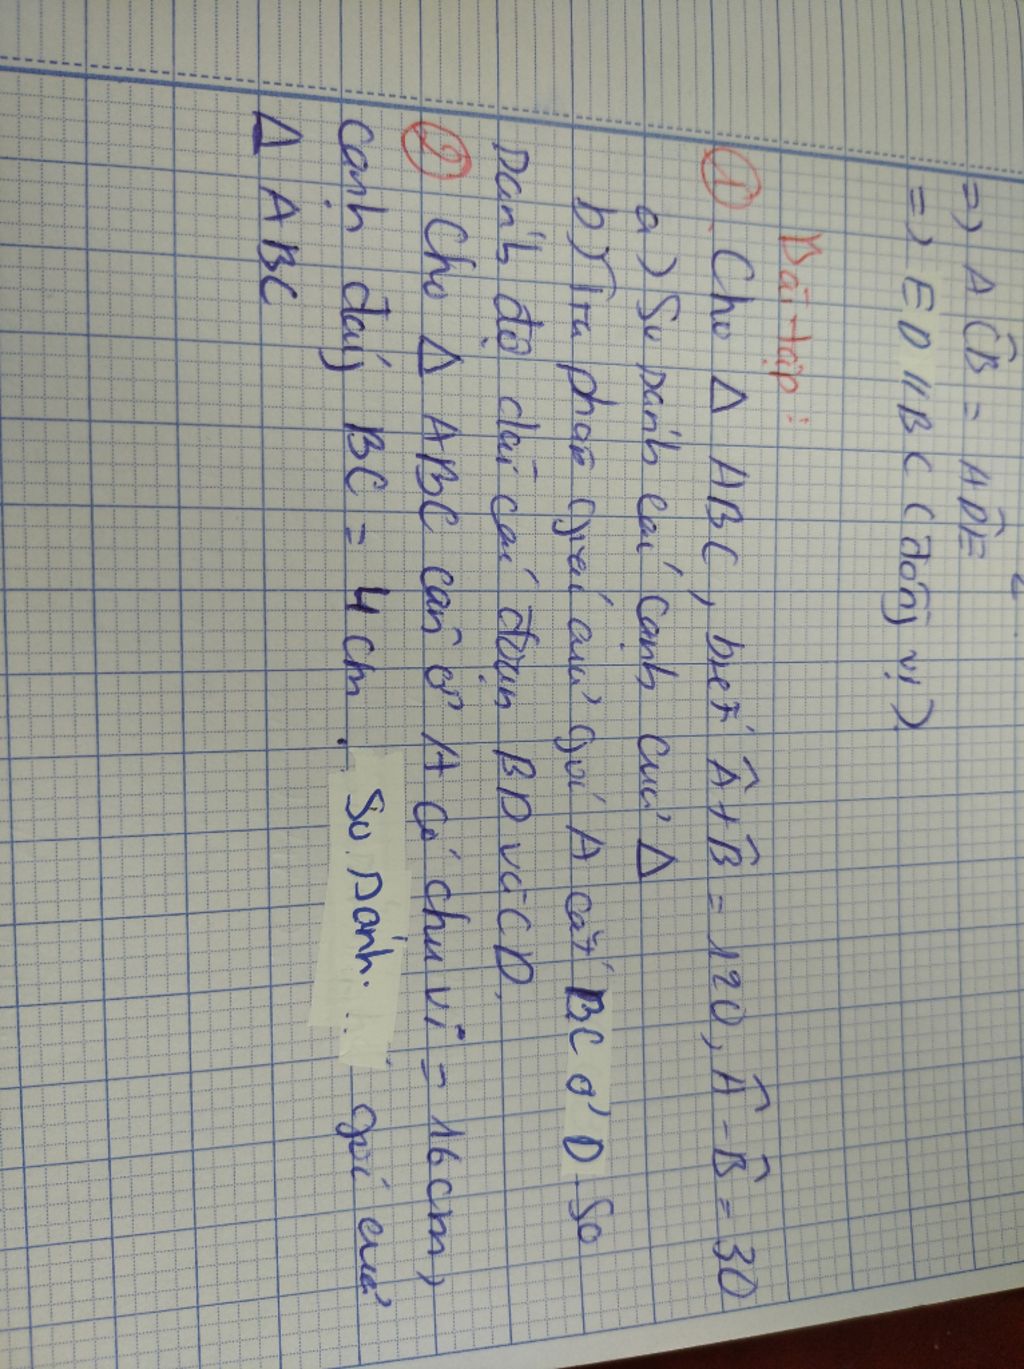 =) AĈB = AD̂E
=) ED // BC (đồng vị)
Bài tập:
① Cho Δ ABC, biết Â + B̂ = 120, Â - B̂ = 30
a) So sánh các cạnh của Δ
b) Tia phân giác của góc A cắt BC ở D So
sánh độ dài các đoạn BD và CD.
② Cho Δ ABC cân ở A có chu vi = 16cm,
cạnh đáy BC = 4 cm. So sánh. góc của
Δ ABC